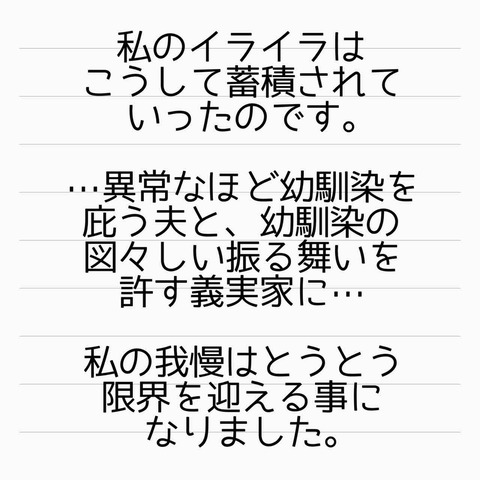 私のイライラは
こうして蓄積されて
いったのです。
…異常なほど幼馴染を
庇う夫と、幼馴染の
図々しい振る舞いを
許す義実家に…
私の我慢はとうとう
限界を迎える事に
なりました。